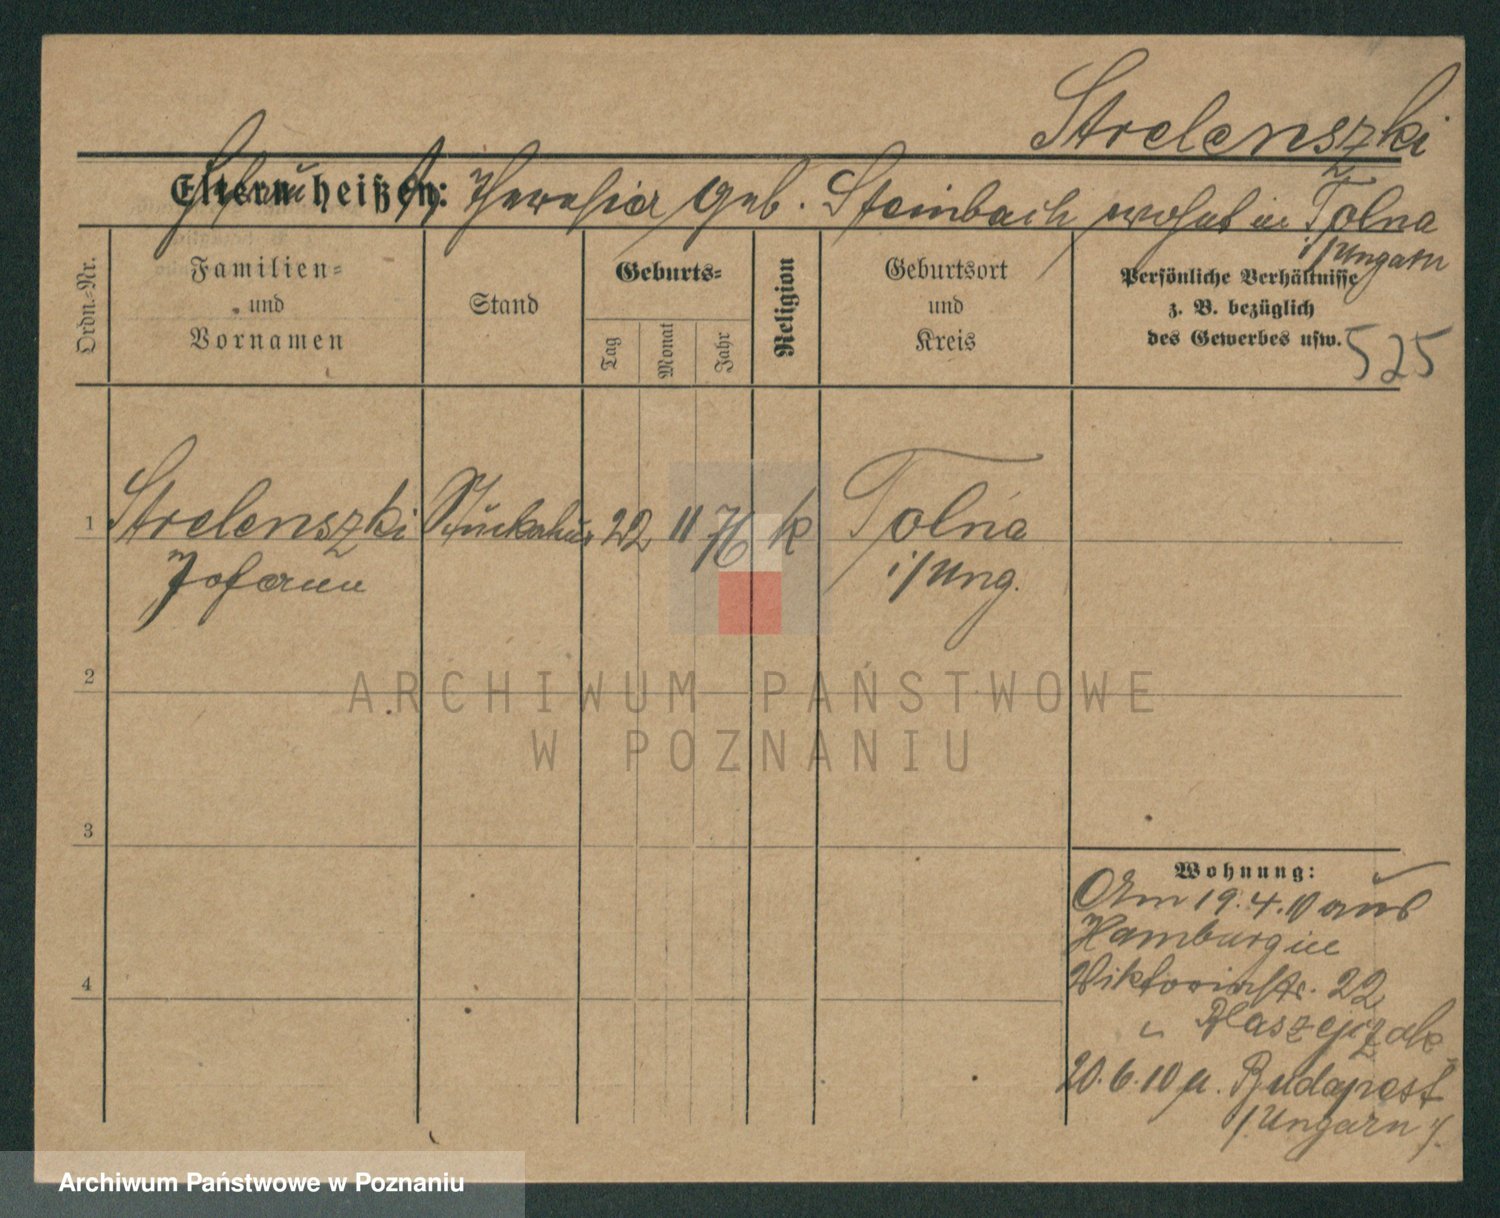 Strelenszki
Eltern heißen: Johann u. Theresia geb. Steinbach wohnt in Tolna
i/Ungarn
Ordn.-Nr.
Familien-
und
Vornamen
Stand
Geburts-
Tag
Monat
Jahr
Religion
Geburtsort
und
Kreis
Persönliche Verhältnisse
z. B. bezüglich
des Gewerbes usw.
525
1 Strelenszki Stuckateur 22 11 76 k Tolna
Johann i/Ung.
2
ARCHIWUM PAŃSTWOWE
W POZNANIU
3
4
Wohnung:
Am 19.4.10 aus
Hamburg in
Viktoriastr. 22
b Blaszejczak
20.6.10 n. Budapest
/Ungarn/.
Archiwum Państwowe w Poznaniu